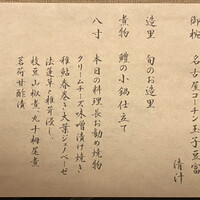 御椀 名古屋コーチン玉子豆富
清汁
造里 旬のお造里
煮物 鱧の小鍋仕立て
八寸 本日の料理長お勧め焼物
クリームチーズ味噌漬け焼き
稚鮎春巻き大葉ジェノベーゼ
法蓮草と椎茸浸し
枝豆山椒煮 丸十梔尾煮
茗荷甘酢漬